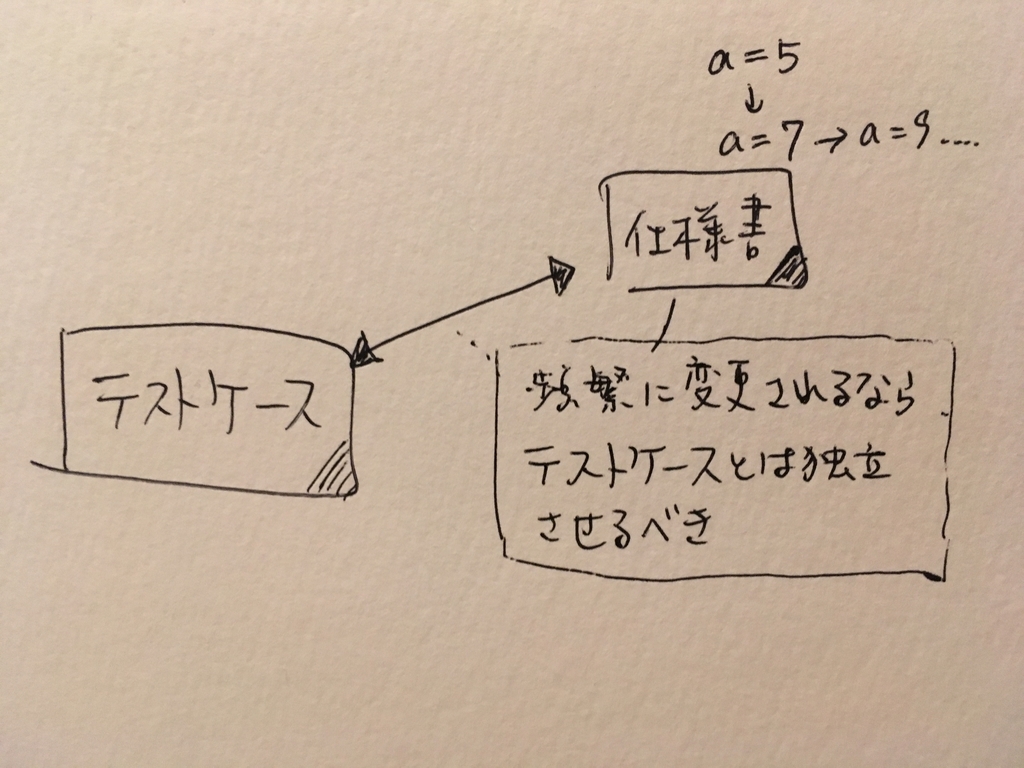 a=5
↓
a=7→a=9....
仕様書
テストケース
頻繁に変更されるなら
テストケースとは独立
させるべき